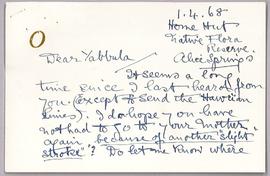 1.4.68
Home Hut
Native Flora
Reserve.
Alice Springs
Dear Yabbula
It seems a long
time since I last heard from
you. (except to send the
Times). I do hope you have
not had to go to your mother
again because of another "slight
stroke"? Do let me know where